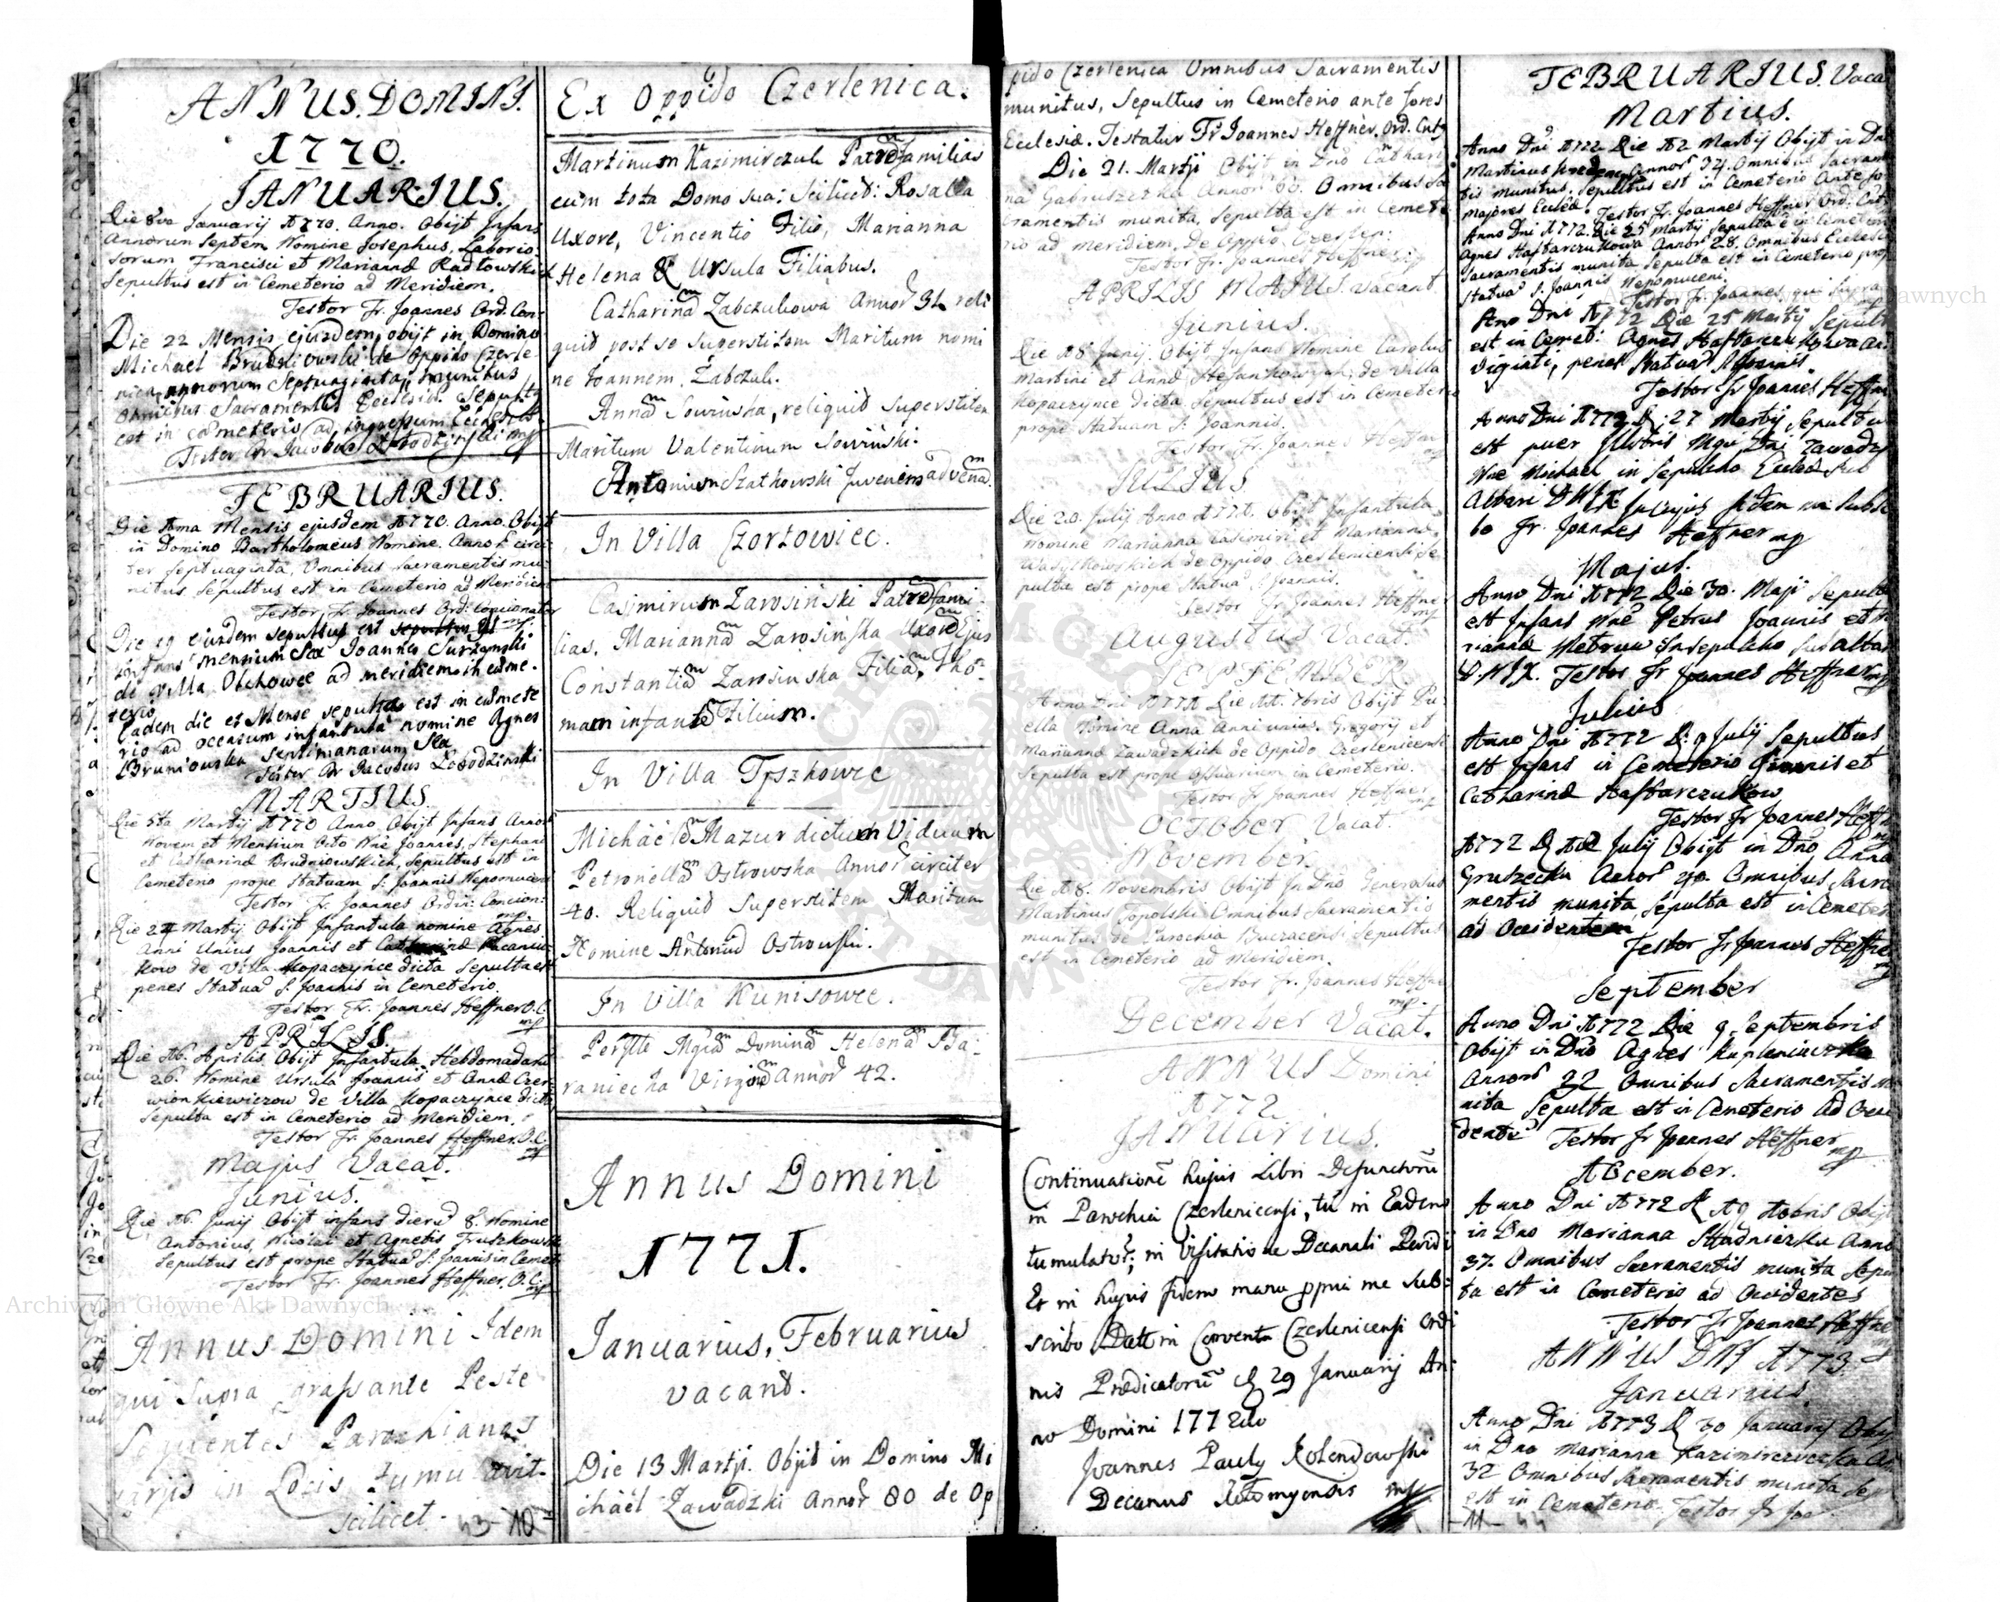 ANNUS DOMINI
1770.
JANUARIUS.
Die 8va Januarij 1770. Anno. Obijt Infans
Annorum Septem Nomine Josephus, Laborio
sorum Francisci et Mariannæ Radłowskich
Sepultus est in Cemeterio ad Meridiem.
Testor Fr. Joannes Ord. Con
Die 22 Mensis ejusdem obijt in Domino
Michael Brudniowski de Oppido Czerle
nica annorum Septuaginta munitus
omnibus Sacramentis Ecclesiæ Sepultus
est in cæmeterio ad ingressum
FEBRUARIUS.
Die 1ma Mensis ejusdem 1770. Anno. Obijt
in Domino Bartholomeus Nomine. Annor circi
ter Septuaginta, Omnibus Sacramentis mu
nitus, Sepultus est in Cemeterio ad Meridiem
Testor Fr. Joannes Ord: Concionator
Die 19 ejusdem sepultus est
Infans mensium Sex Joannes
de Villa Olchowec ad meridiem in cæme-
terio
Eadem die et Mense sepulta est in cæmete
rio ad occasum infantula nomine Agnes
Bruniowska septimanarum Sex
Testor Fr Jacobus
MARTIUS.
Die 5ta Martij 1770 Anno. Obijt Infans Annor
Novem et Mensium Octo Nne Joannes, Stephani
et Catharinæ Brudniowskich, Sepultus est in
Cemeterio prope Statuam S: Joannis Nepomuceni
Testor Fr. Joannes Ordin: Concion:
mp.
Die 24 Martij Obijt Infantula nomine Agnes
Anni Unius Joannis et Catharinæ
kow de Villa Kopaczynce dicta Sepulta est
penes Statua S. Joannis in Cemeterio.
Testor Fr. Joannes Heffner O.C.
mp
APRILIS.
Die 16. Aprilis Obijt Infantula Hebdomadarum
26. Nomine Ursula Joannis et Annæ Czer
wionkiewiczow de Villa Kopaczynce dicta
Sepulta est in Cemeterio ad Meridiem.
Testor Fr. Joannes Heffner. O.C.
mp
Majus Vacat.
Junius.
Die 16. Junij Obijt infans dierũ 8. Nomine
Antonius, Nicolai et Agnetis Truszkows
Sepultus est prope Statuã S. Joannis in Cemet
Testor Fr. Joannes Heffner. O.C.
mp
Annus Domini Idem
qui Supra grassante Peste
Sequentes Parochianos
varijs in Locis tumulavit
scilicet -
43-10
Ex Oppido Czerlenica.
Martinum Kazimirczuk Patremfamilias
cum tota Domo sua: Scilicet: Rosalia
Uxore, Vincentio Filio, Marianna
Helena & Ursula Filiabus.
Catharinam Zabczukowa Annor 31. reli
quit post se Superstitem Maritum nomi
ne Joannem Zabczuk.
Annam Sowinska, reliquit Superstitem
Maritum Valentinum Sowinski.
Antonium Szatkowski Juvenem advenam.
In Villa Czortowiec.
Casimirum Zarosiński Patremfami-
lias, Mariannam Zarosińska Uxorem Ejus
Constantiam Zarosinska Filiam, Tho-
mam infantem Filium.
In Villa Tyszkowce
Michaëlem Mazur dictum Viduum
Petronellam Ostrowska Annor circiter
40. Reliquit Superstitem Maritum
Nomine Antonium Ostrowski.
In Villa Kunisowce.
Perillem Mgcam Dominam Helenam Ba-
raniecka Virginem Annor 42.
Annus Domini
1771.
Januarius, Februarius
vacant.
Die 13 Martji. Obijt in Domino Mi
chaël Zawadzki Annor 80 de Op
pido Czerlenica Omnibus Sacramentis
munitus, Sepultus in Cemeterio ante fores
Ecclesiæ. Testatur Fr Joannes Heffner, Ord. Cntr
Die 21. Martji Obijt in Dno Cathari
na Gabruszeska Annor 60. Omnibus Sa
cramentis munita, Sepulta est in Cemete
rio ad meridiem, de Oppido Czerlen:
Testor Fr. Joannes Heffner
APRILIS MAJUS. vacant.
Junius.
Die 18. Junij. Obijt Infans Nomine Carolus
Martini et Annæ Stefankowich, de Villa
Kopaczynce dicta Sepultus est in Cemeterio
prope Statuam S. Joannis.
Testor Fr. Joannes Heffner
mp
JULIUS
Die 20. Julij Anno 1771. Obijt Infantula
Nomine Marianna Casimiri et Mariannæ
Wasylkowskich de Oppido Czerlenicensi Se
pulta est prope Statuã S. Joannis.
Testor Fr. Joannes Heffner
mp
Augustus Vacat.
SEPTEMBER
Anno Dni 1771 Die 11. 7bris Obijt Pu
ella Nomine Anna Anni unius. Gregorij et
Mariannæ Zawadzkich de Oppido Czerlenicensi
Sepulta est prope Ossuarium in Cemeterio.
Testor Fr. Joannes Heffner
mp
OCTOBER Vacat.
November.
Die 18. Novembris Obijt In Dno Generosus
Martinus Topolski Omnibus Sacramentis
munitus de Parochia Buczacens: Sepultus
est in Cemeterio ad Meridiem.
Testor Fr. Joannes Heffner
mp.
December Vacat.
ANNUS Domini
1772
JANUARIUS.
Continuationẽ hujus Libri Defunctorũ
in Parochia Czerlenicensi, tũ in Eadem
tumulator; in Visitatione Decanali Revidi
Et in hujus fidem manu ppria me Sub-
scribo Datt in Conventu Czerlenicensi Ordi
nis Prædicatorũ d 29 Januarij An-
no Domini 1772do
Joannes Pauly Kolendowski
Decanus mp
FEBRUARIUS. Vacat
Martius.
Anno Dni 1772 Die 12 Martij Obijt in Dno
Martinus Annor 74. Omnibus Sacram
tis munitus, Sepultus est in Cemeterio Ante fo
majores Ecclæ. Testor Fr. Joannes Heffner Ord. Cntr
Anno Dni 1772. Die 25 Martij Sepulta e in Cemeterio
Agnes Haftarczukowa Annor 28. Omnibus Eccles
Sacramentis munita Sepulta est in Cemeterio prope
Statuã S. Joannis Nepomuceni.
Testor Fr Joannes qui supra
Ano Dni 1772 Die 25 Martij Sepulta
est in Cemet: Agnes Haftarczukowa An
viginti, penes Statuã S Joannis.
Testor Fr Joannes Heffner
Anno Dni 1772 D: 27 Martij Sepultus
est puer Illtris Mgci Dni Zawadz
Nne Michael in Sepulcho Ecclesiæ Sub
Altari In cujus fidem me Subscri
bo Fr. Joannes Hefner mp
Majus.
Anno Dni 1772 Die 30. Maji Sepultus
est Infans Nne Petrus Joannis et M
riannæ in Sepulcho Sub altari
Testor Fr Joannes Heffner mp
Julius
Anno Dni 1772 D: 9 Julij Sepultus
est Infans in Cemeterio Joannis et
Catharinæ Haftarczukow
Testor Fr Joannes Heffn
mp
1772 D 12 Julij Obijt in Dno Anna
Gruszecka Annor 40. Omnibus Sacra
mentis munita, Sepulta est in Cemeter
ad Occidentem
Testor Fr Joannes Heffne
mp
September
Anno Dni 1772 Die 9 Septembris
Obijt in Dno Agnes
Annor 22 Omnibus Sacramentis mu
nita Sepulta est in Cemeterio ad Occi
dentẽ Testor Fr Joannes Heffner
mp
December.
Anno Dni 1772 D 19 Xbris Obijt
in Dno Marianna Stadnicka Anno
37. Omnibus Sacramentis munita Sepul
ta est in Cemeterio ad Occidentẽ
Testor Fr Joannes Heffne
ANNUS DNI 1773
Januarius
Anno Dni 1773 D 30 Januarij Obij
in Dno Marianna Kazimirczucka An
32 Omnibus Sacramentis munita Sep
est in Cemeterio. Testor Fr Joa
-11- 44
Archiwum Główne Akt Dawnych
Archiwum Główne Akt Dawnych
ARCHIWUM GŁÓWNE AKT DAWNYCH